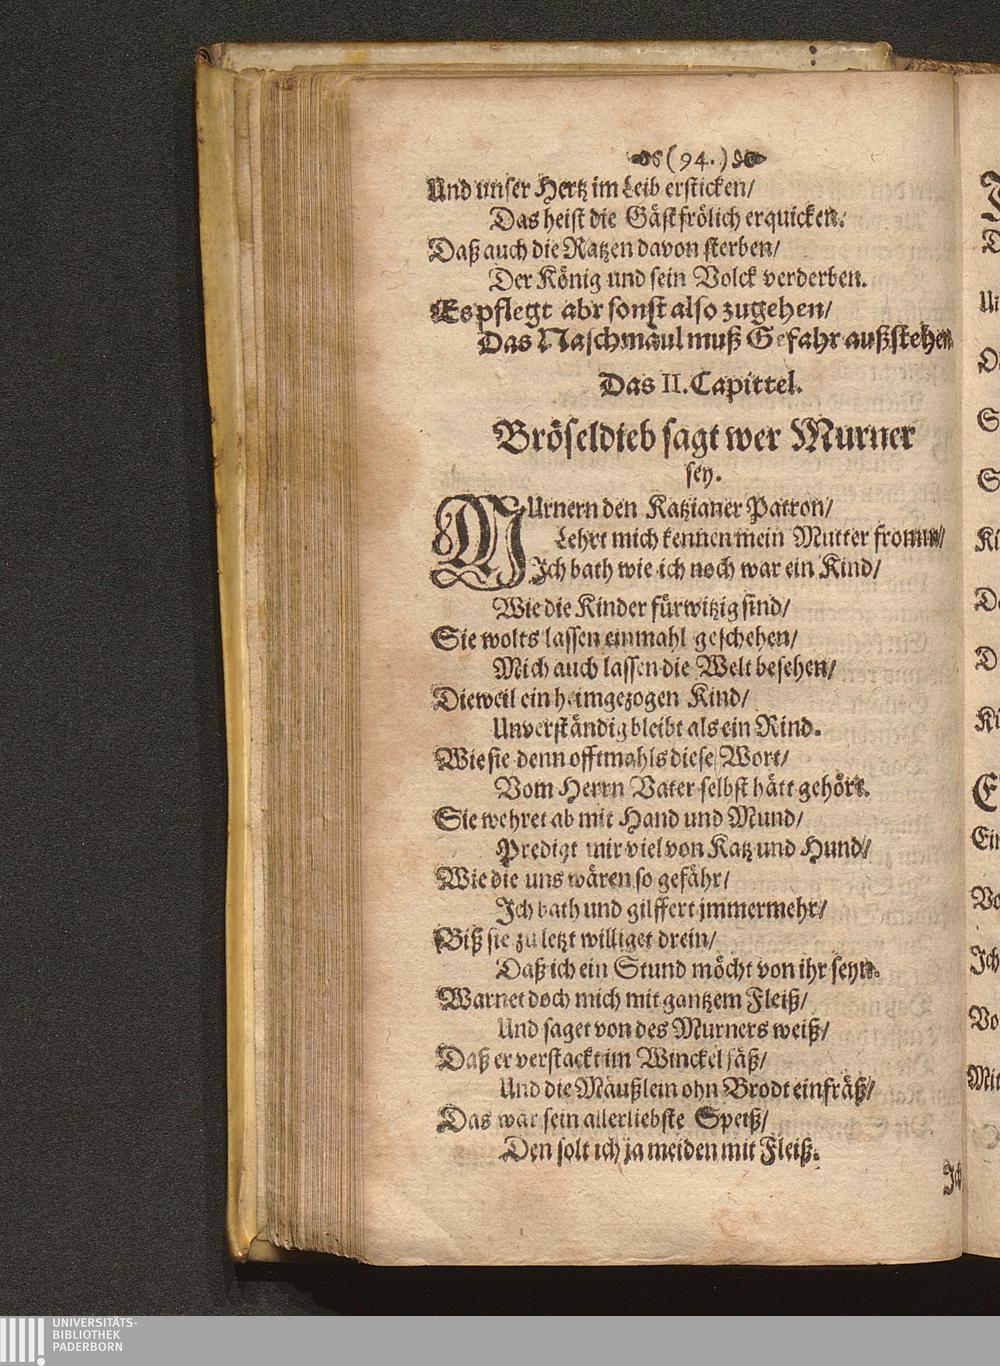 (94.)
Und unser Hertz im Leib ersticken/
Das heist die Gäst frölich erquicken.
Daß auch die Ratzen davon sterben/
Der König und sein Volck verderben.
Es pflegt abr sonst also zugehen/
Das Naschmaul muß Gefahr außstehen
Das II. Capittel.
Bröseldieb sagt wer Murner
sey.
MUrnern den Katzianer Patron/
Lehrt mich kennen mein Mutter fromm/
Ich bath wie ich noch war ein Kind/
Wie die Kinder fürwitzig sind/
Sie wolts lassen einmahl geschehen/
Mich auch lassen die Welt besehen/
Dieweil ein heimgezogen Kind/
Unverständig bleibt als ein Rind.
Wie sie denn offtmahls diese Wort/
Vom Herrn Vater selbst hätt gehört.
Sie wehret ab mit Hand und Mund/
Predigt mir viel von Katz und Hund/
Wie die uns wären so gefähr/
Ich bath und gilffert jmmermehr/
Biß sie zu letzt williget drein/
Daß ich ein Stund möcht von ihr seyn.
Warnet doch mich mit gantzem Fleiß/
Und saget von des Murners weiß/
Daß er verstackt im Winckel säß/
Und die Mäußlein ohn Brodt einfräß/
Das war sein allerliebste Speiß/
Den solt ich ja meiden mit Fleiß.
Ich
UNIVERSITÄTS-
BIBLIOTHEK
PADERBORN